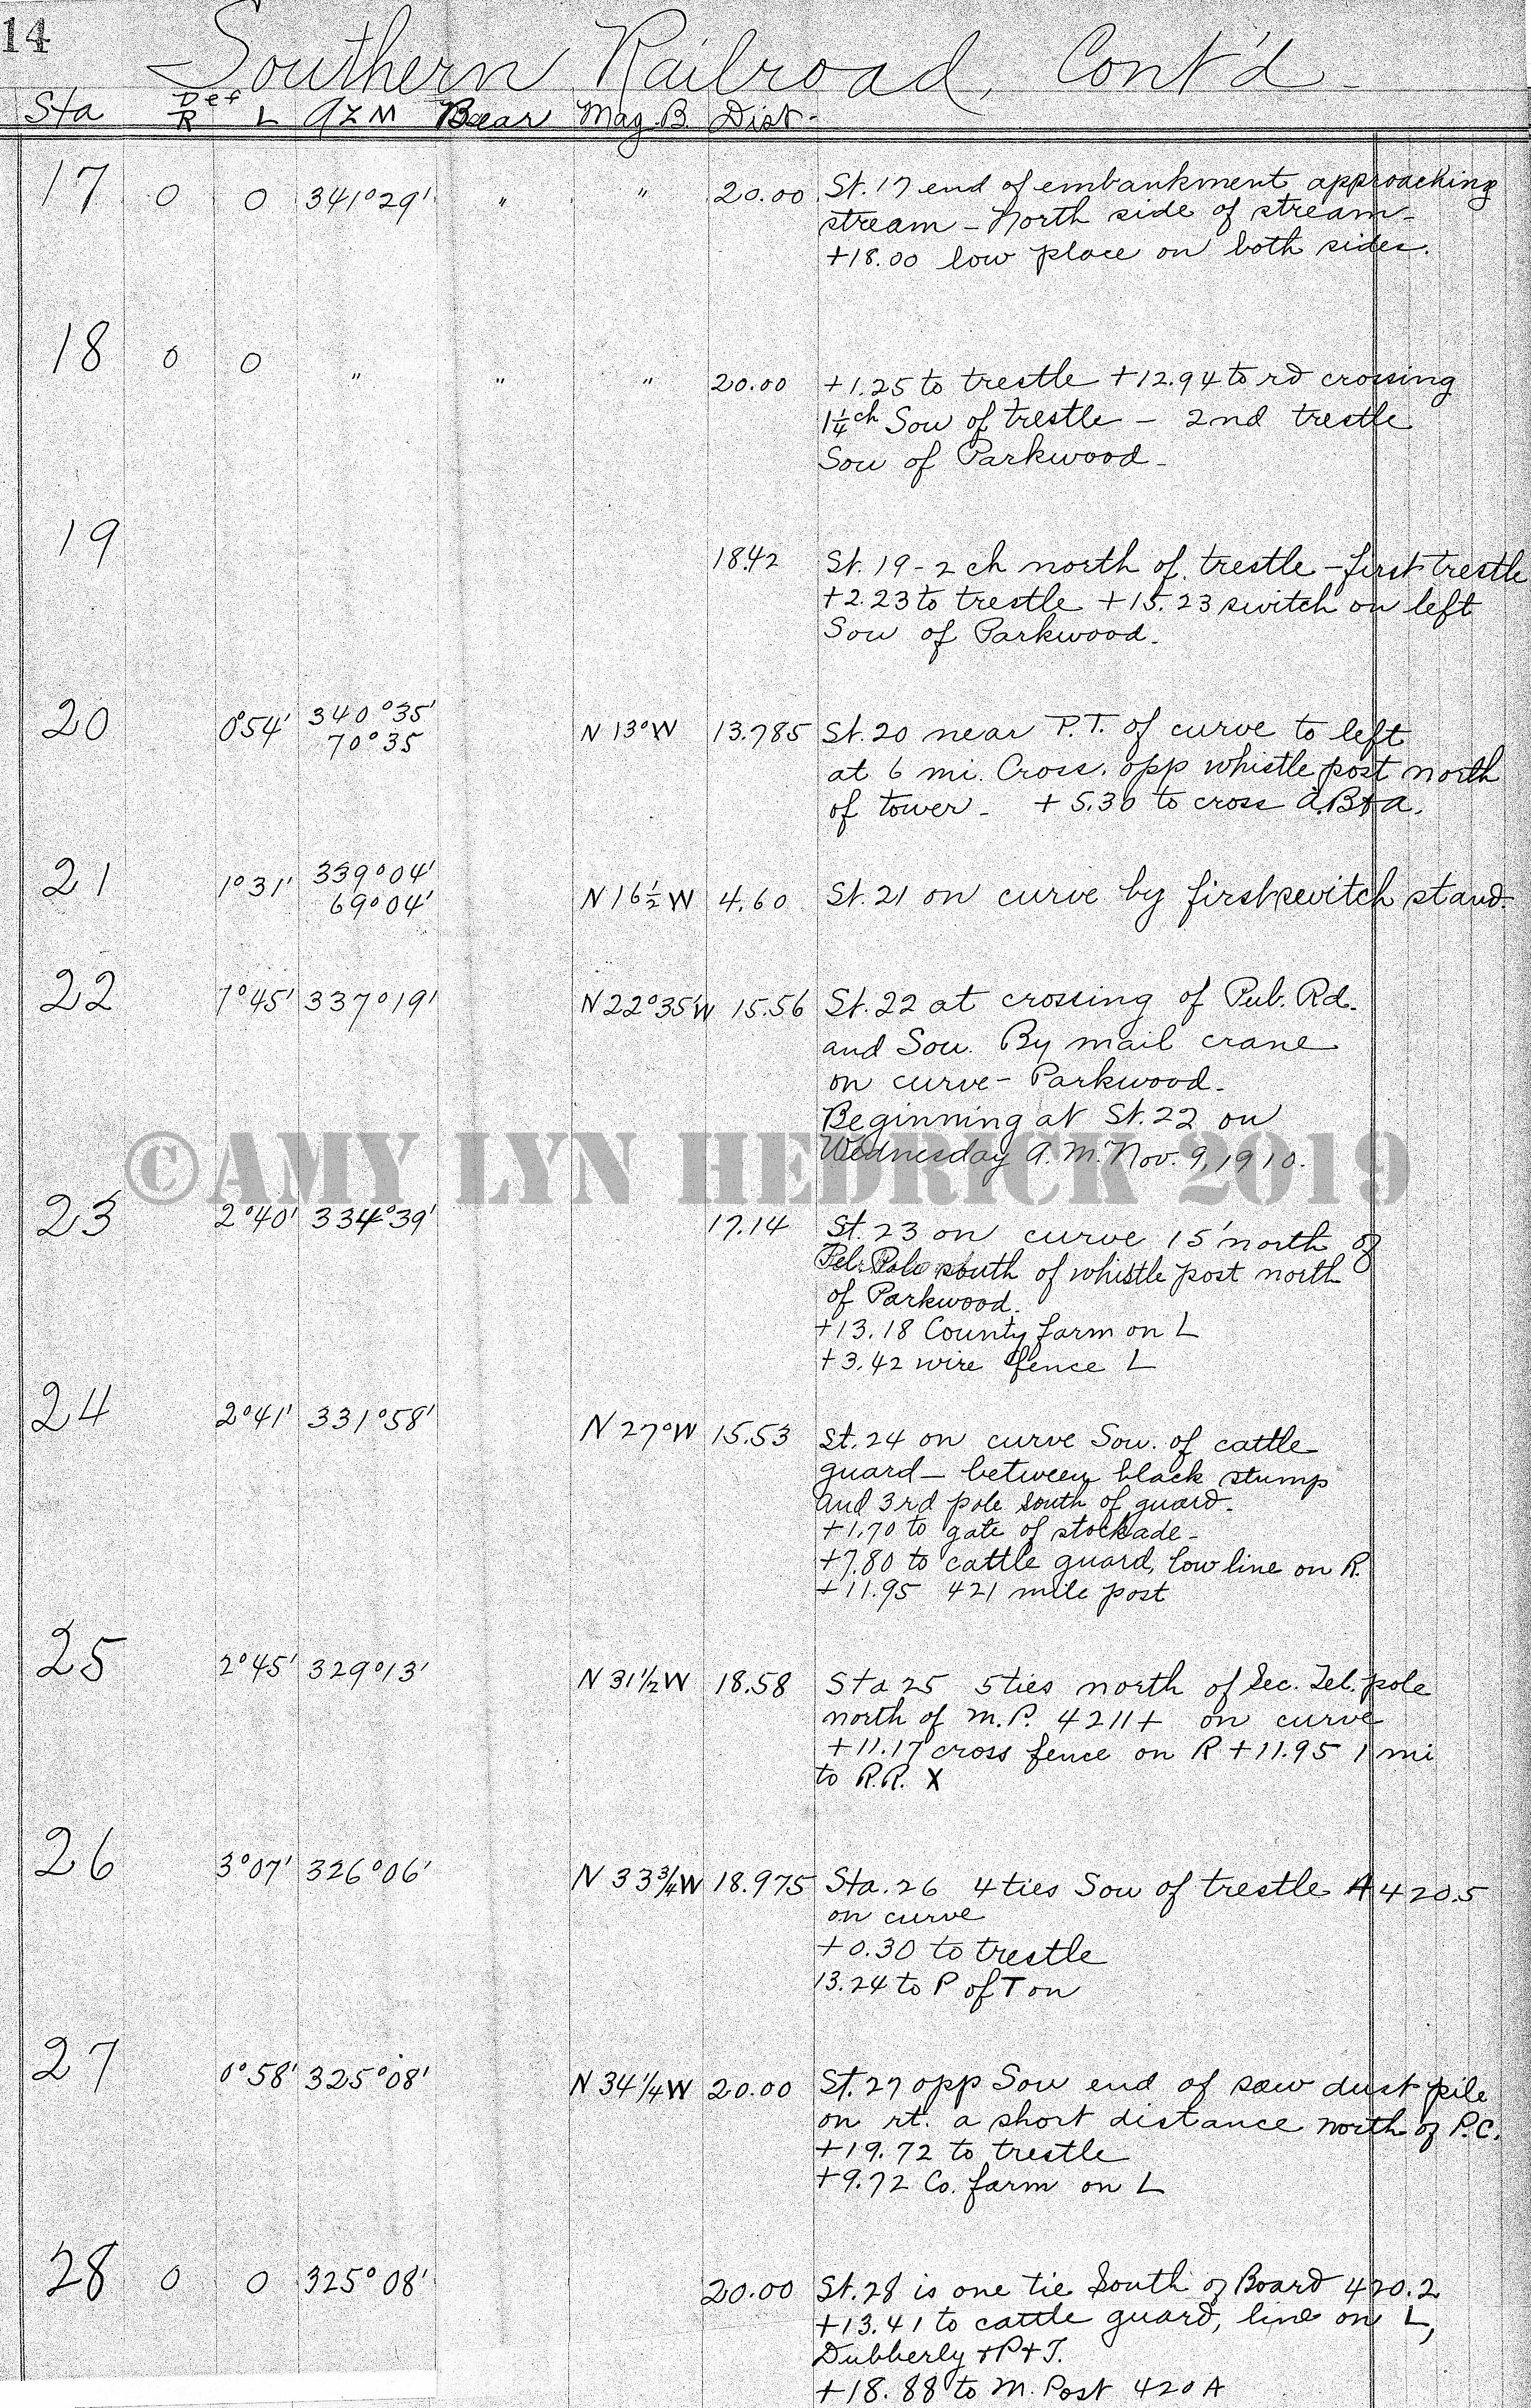 14
Southern Railroad, Cont'd.
Sta Def R L AZM Bear Mag. B. Dist.
17 0 0 341°29' " " 20.00 St. 17 end of embankment approaching
stream - North side of stream -
+18.00 low place on both sides.
18 0 0 " " " 20.00 +1.25 to trestle +12.94 to rd crossing
1¼ ch Sou of trestle - 2nd trestle
Sou of Parkwood -
19 18.42 St. 19 - 2 ch north of trestle - first trestle
+2.23 to trestle +15.23 switch on left
Sou of Parkwood.
20 0°54' 340°35' N 13° W 13.785 St. 20 near P.T. of curve to left
70°35
at 6 mi. Cross. opp whistle post north
of tower - + 5.30 to cross A.B+A.
21 1°31' 339°04' N 16½ W 4.60 St. 21 on curve by first switch stand.
69°04'
22 1°45' 337°19' N 22°35' W 15.56 St. 22 at crossing of Pub. Rd.
and Sou. By mail crane
on curve - Parkwood -
Beginning at St. 22 on
Wednesday A.M. Nov. 9, 1910.
©AMY LYN HEDRICK 2019
23 2°40' 334°39' 17.14 St. 23 on curve 15' north of
Tel. Pole south of whistle post north
of Parkwood.
+13.18 County farm on L
+3.42 wire fence L
24 2°41' 331°58' N 27° W 15.53 St. 24 on curve Sou. of cattle
guard - between black stump
and 3rd pole south of guard -
+1.70 to gate of stockade -
+7.80 to cattle guard, low line on R.
+11.95 421 mile post
25 2°45' 329°13' N 31½ W 18.58 Sta 25 5 ties north of Sec. Tel. pole
north of M.P. 421 on curve
+11.17 cross fence on R +11.95 1 mi
to R.R. X
26 3°07' 326°06' N 33¾ W 18.975 Sta. 26 4 ties Sou of trestle A 420.5
on curve
+0.30 to trestle
13.24 to P of T on
27 0°58' 325°08' N 34¼ W 20.00 St. 27 opp Sou end of saw dust pile
on rt. a short distance north of P.C.
+19.72 to trestle
+9.72 Co. farm on L
28 0 0 325°08' 20.00 St. 28 is one tie South of Board 420.2
+13.41 to cattle guard, line on L,
Dubberly + P + T.
+18.88 to M. Post 420 A